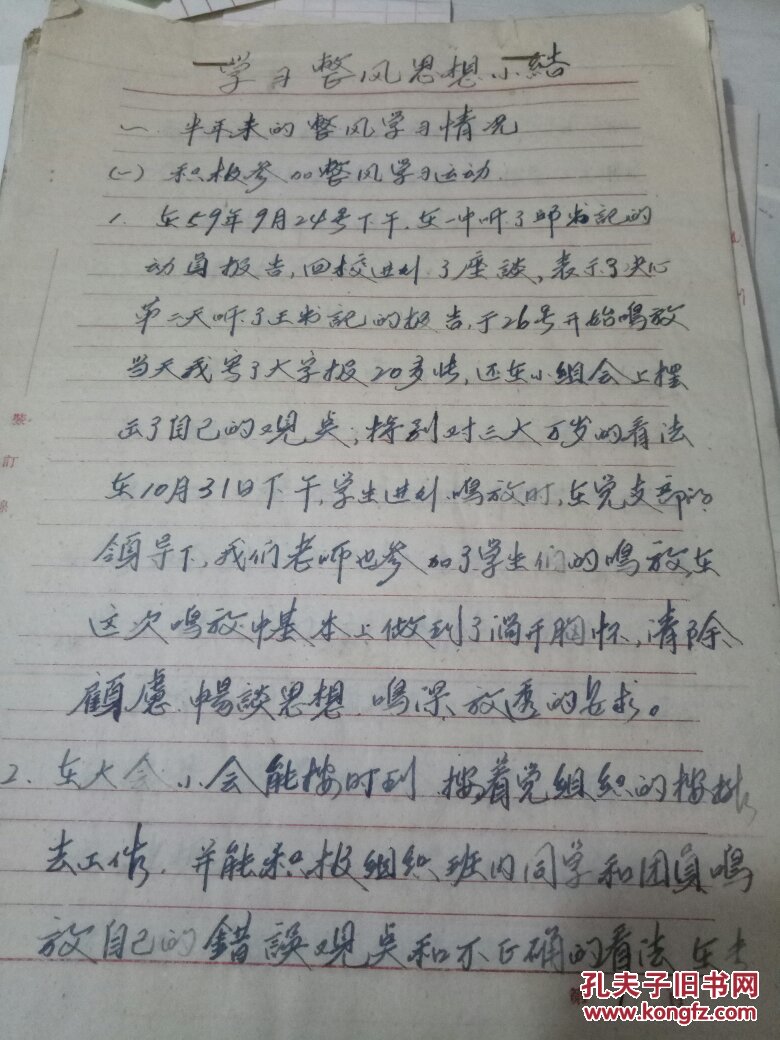 学习整风思想小结
一 半年来的整风学习情况
(一) 积极参加整风学习运动.
1. 在59年9月24号下午，在一中听了邱书記的
动員报告，回校进行了座談，表示了决心
第二天听了王书記的报告，于26号开始鳴放
当天我写了大字报20多张，还在小組会上摆
出了自己的观点，特别对三大万岁的看法
在10月31日下午，学生进行鳴放时，在党支部的
領导下，我们老师也参加了学生们的鳴放，在
这次鳴放中基本上做到了淌开胸怀，清除
顧慮 暢談思想 鳴深放透的要求。
2. 在大会小会能按时到 按着党組织的按排
去工作. 并能积极組织班内同学和团員鳴
放自己的錯誤观点和不正确的看法 在去
裝
訂
線
第
孔夫子旧书网
www.kongfz.com